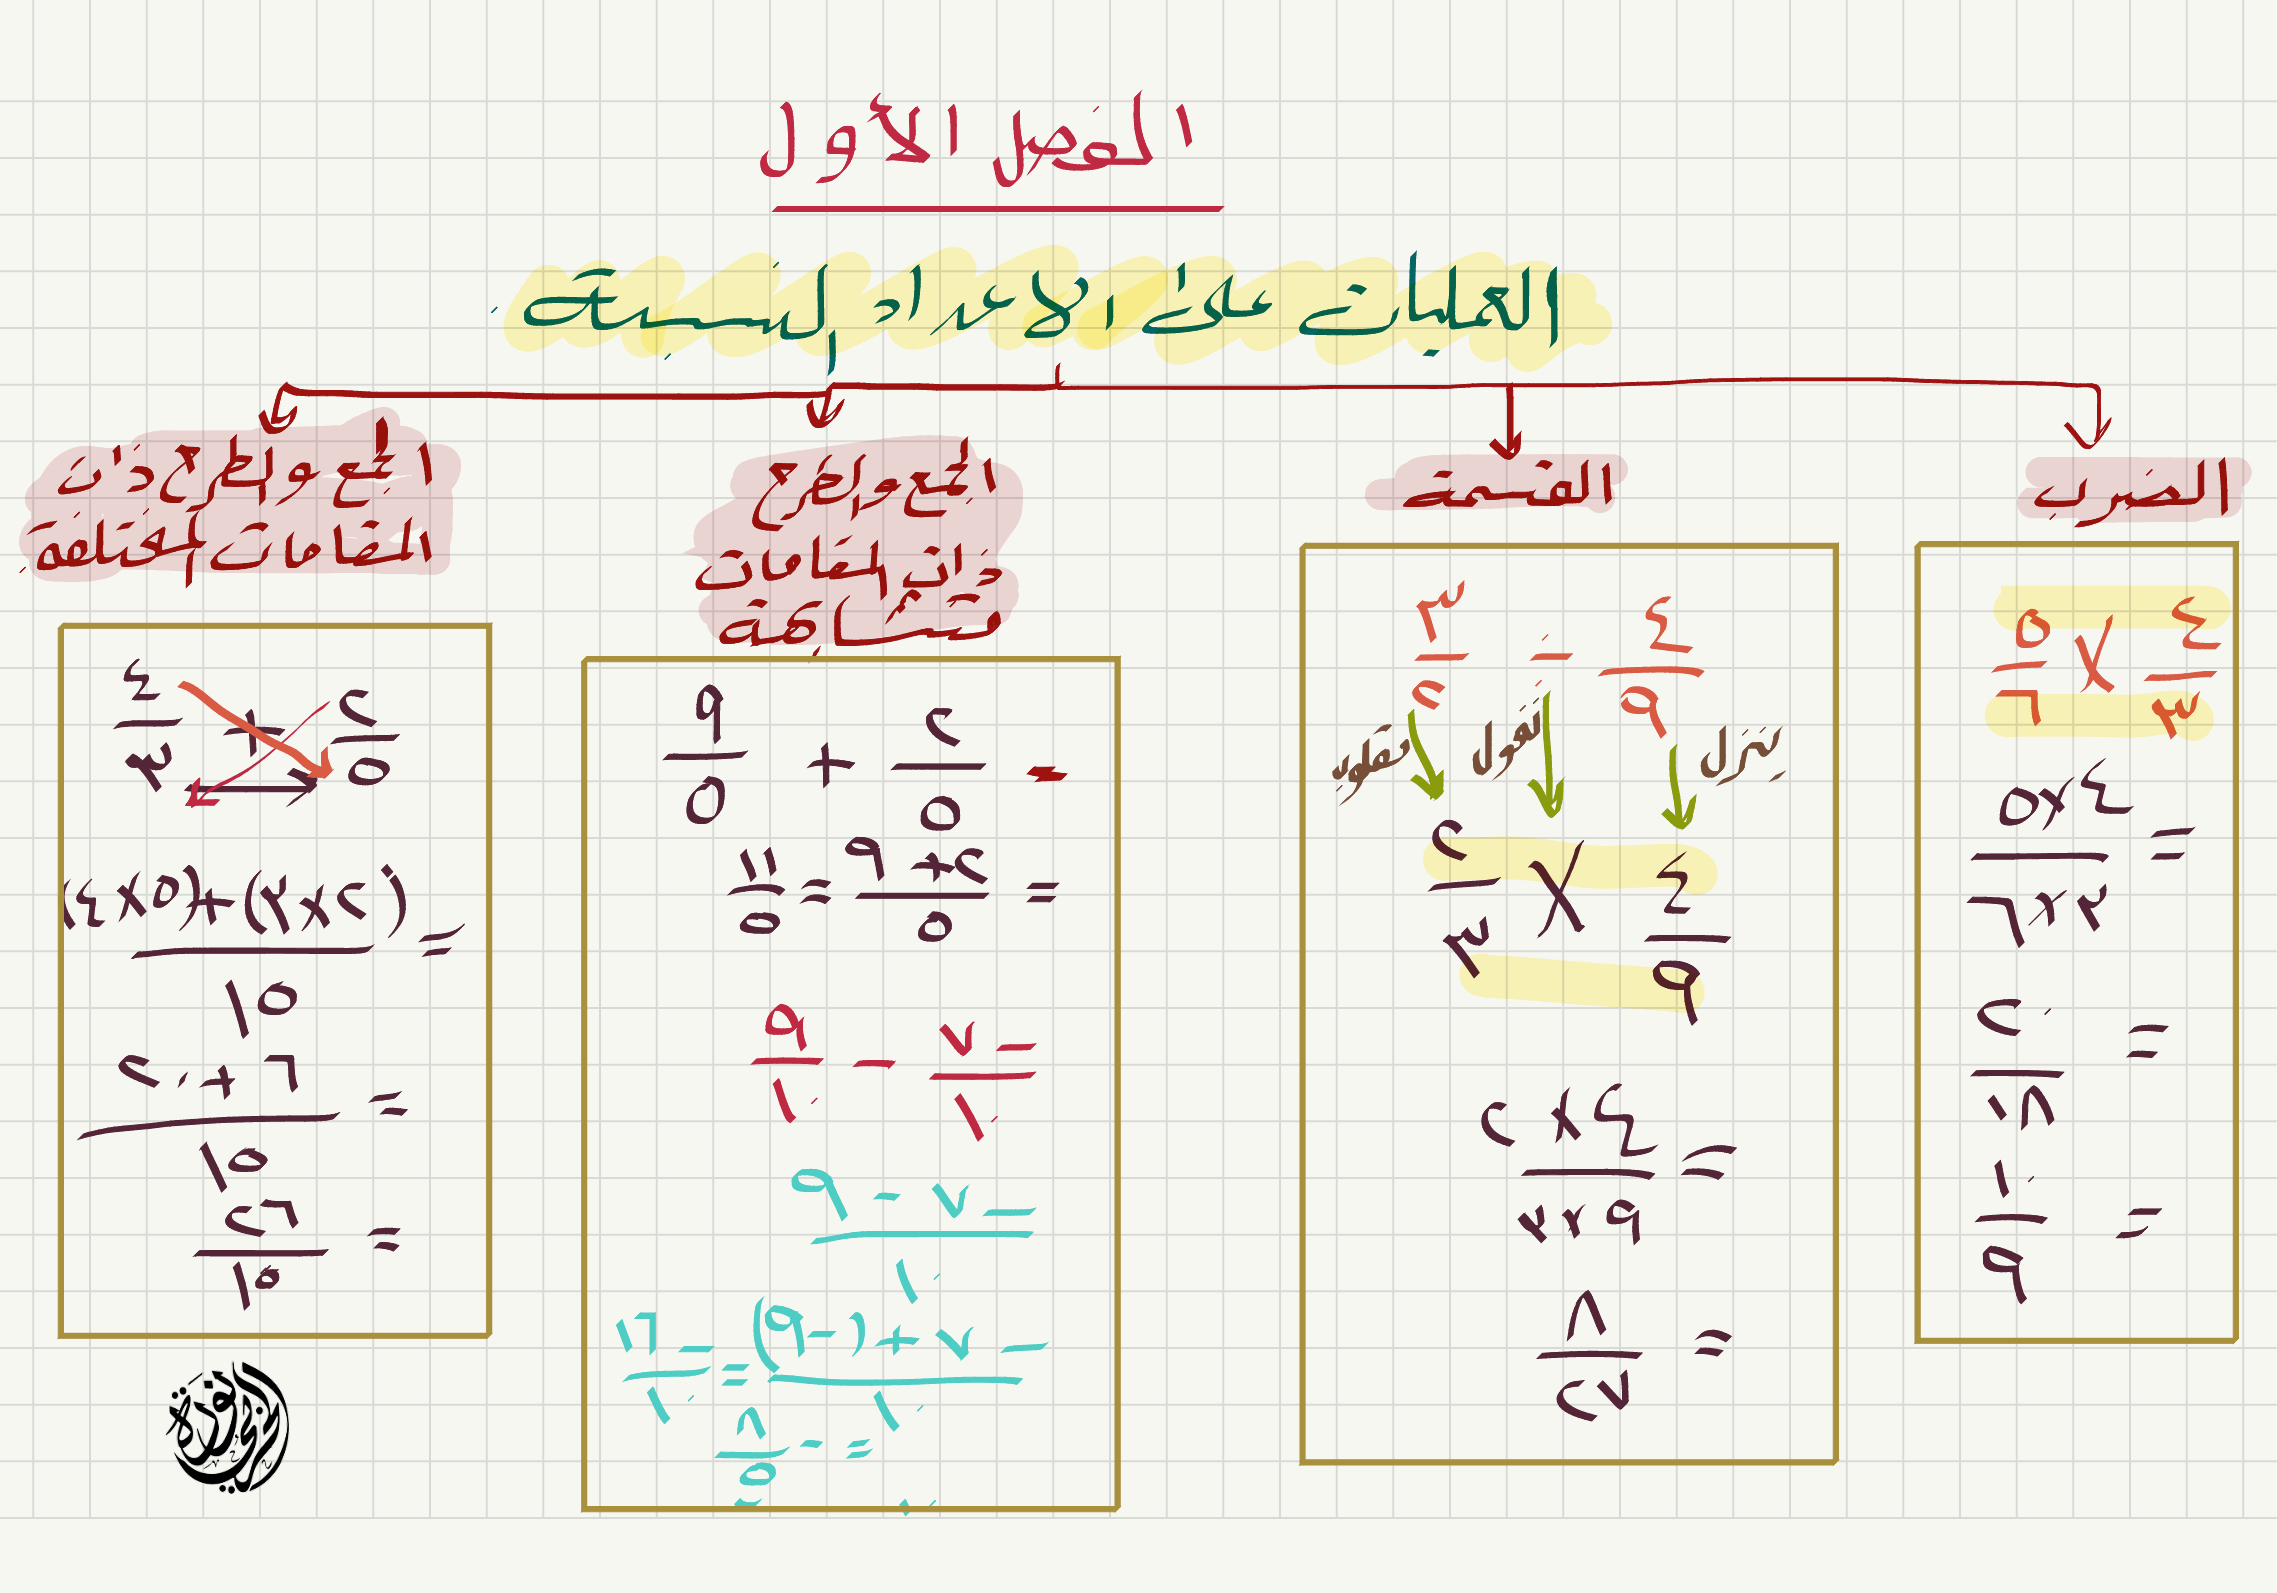 الفصل الأول
العمليات على الاعداد النسبية
الضرب
٤/٣ × ٥/٦
= ٤×٥ / ٣×٦
= ٢٠ / ١٨
= ١٠ / ٩
القسمة
٤/٩ ÷ ٣/٢
ينزل تحول مقلوب
٤/٩ × ٢/٣
= ٤×٢ / ٩×٣
= ٨ / ٢٧
الجمع والطرح
ذات المقامات
متشابهة
- ٢/٥ + ٩/٥
= ٢+٩ / ٥ = ١١/٥
-٧/١٠ - ٩/١٠
-٧-٩ / ١٠
-٧+(-٩) / ١٠ = -١٦/١٠
= -٨/٥
الجمع والطرح ذات
المقامات المختلفة
٢/٥ + ٤/٣
= (٢×٣)+(٥×٤) / ١٥
= ٦+٢٠ / ١٥
= ٢٦ / ١٥